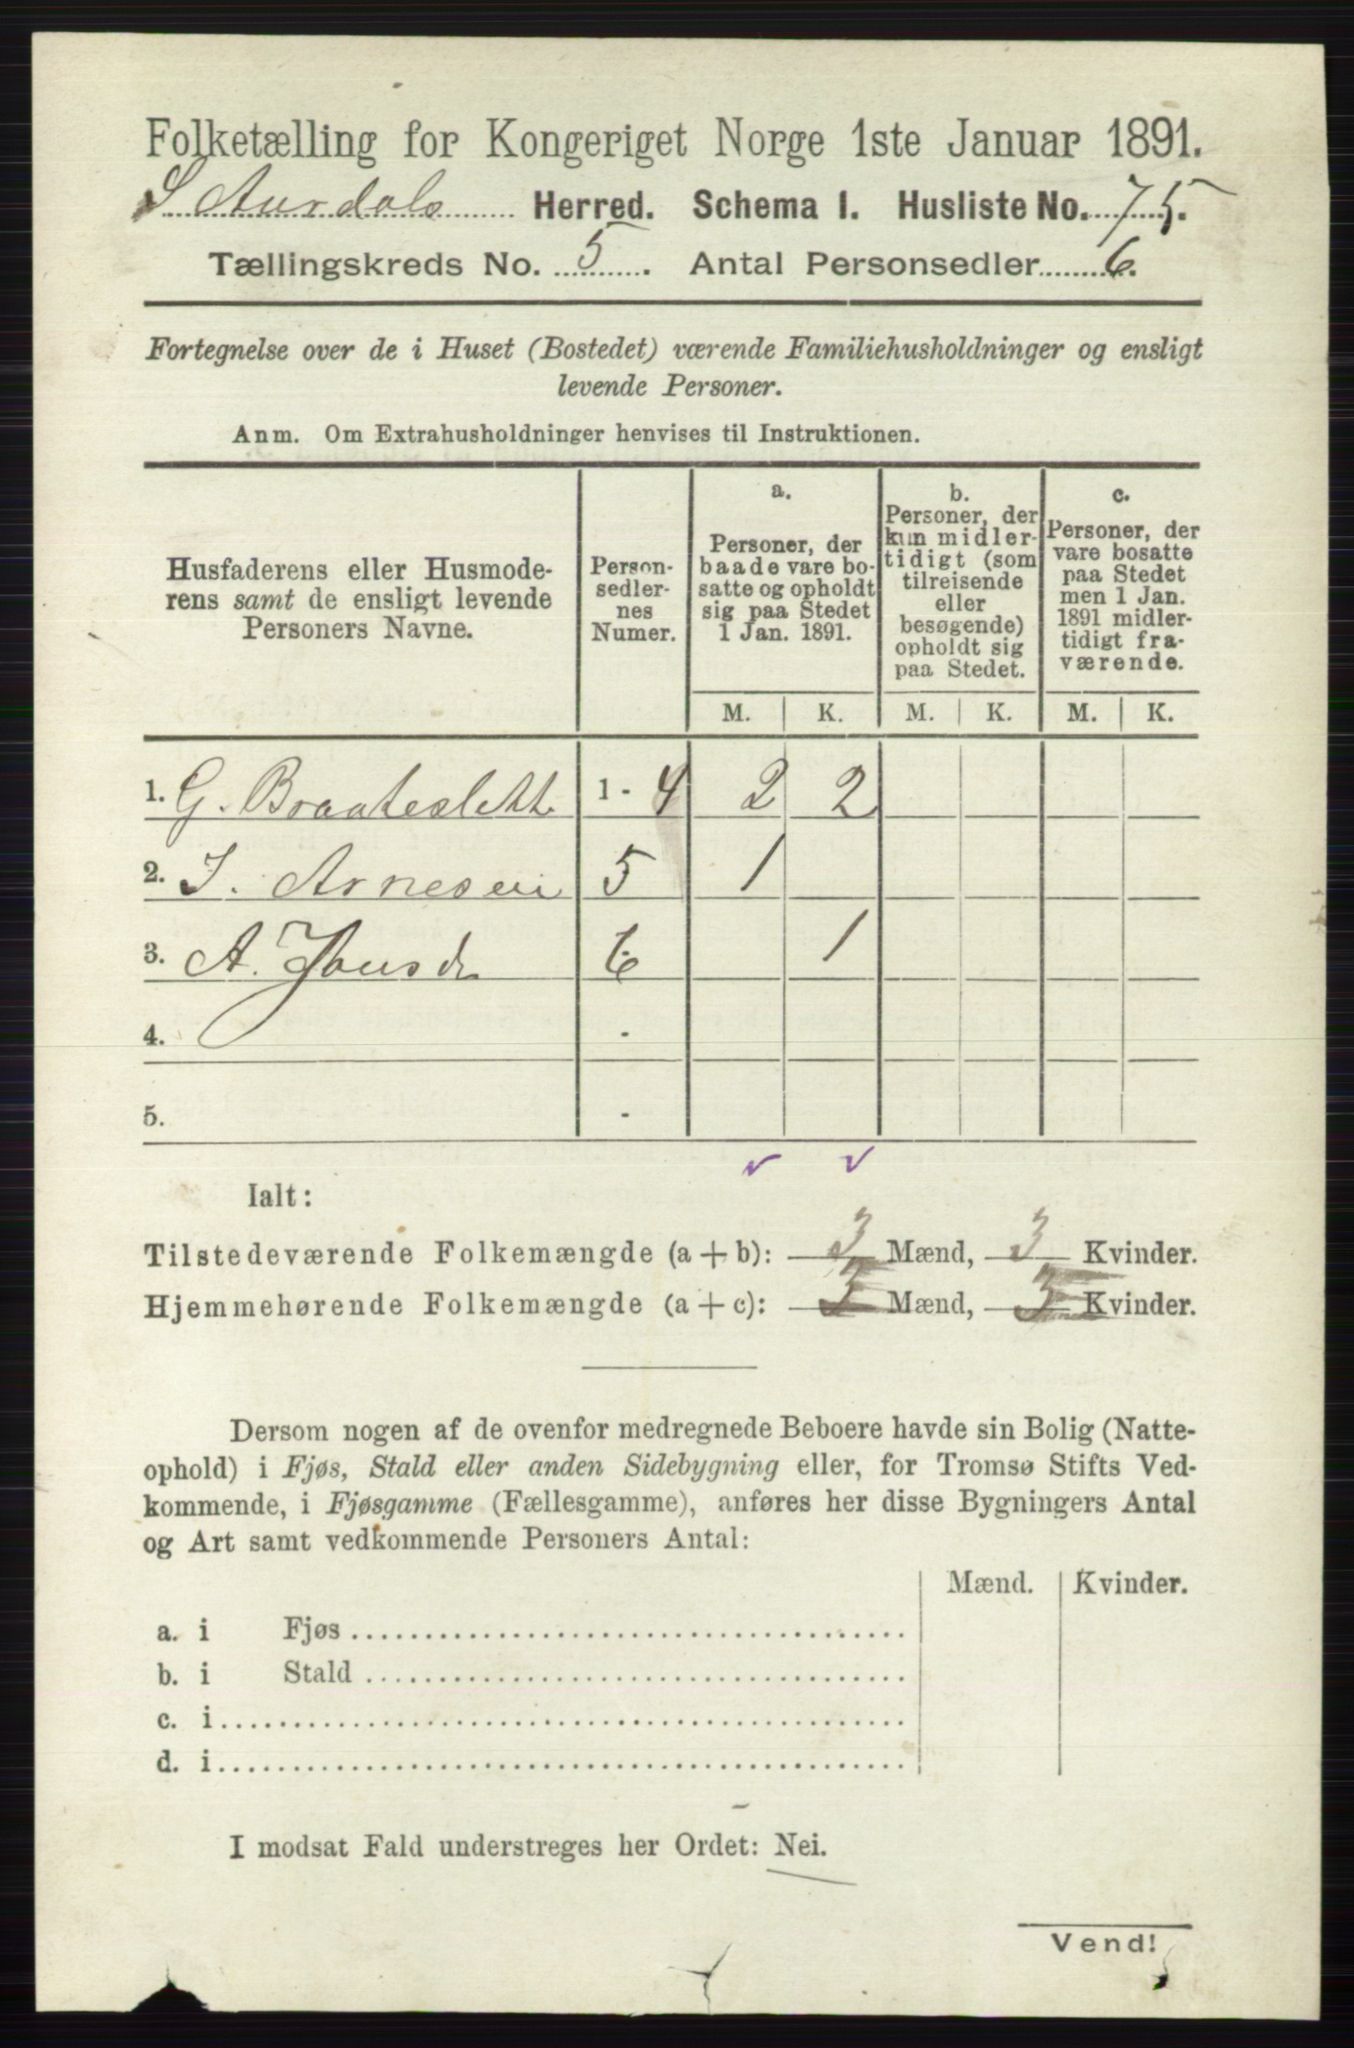 Folketælling for Kongeriget Norge 1ste Januar 1891.
S Aurdals Herred. Schema I. Husliste No. 75.
Tællingskreds No. 5. Antal Personsedler 6.
Fortegnelse over de i Huset (Bostedet) værende Familiehusholdninger og ensligt
levende Personer.
Anm. Om Extrahusholdninger henvises til Instruktionen.
Husfaderens eller Husmode-
rens samt de ensligt levende
Personers Navne.
Person-
sedler-
nes
Numer.
a.
Personer, der
baade vare bo-
satte og opholdt
sig paa Stedet
1 Jan. 1891.
b.
Personer, der
kun midler-
tidigt (som
tilreisende
eller
besøgende)
opholdt sig
paa Stedet.
c.
Personer, der
vare bosatte
paa Stedet
men 1 Jan.
1891 midler-
tidigt fra-
værende.
M. K. M. K. M. K.
1. G. Braateslett 1 - 4 2 2
2. I. Arnesen 5 1
3. A. Jonsd 6 1
4. -
5. -
Ialt:
Tilstedeværende Folkemængde (a + b): 3 Mænd, 3 Kvinder.
Hjemmehørende Folkemængde (a + c): 3 Mænd, 3 Kvinder.
Dersom nogen af de ovenfor medregnede Beboere havde sin Bolig (Natte-
ophold) i Fjøs, Stald eller anden Sidebygning eller, for Tromsø Stifts Ved-
kommende, i Fjøsgamme (Fællesgamme), anføres her disse Bygningers Antal
og Art samt vedkommende Personers Antal:
Mænd. Kvinder.
a. i Fjøs
b. i Stald
c. i
d. i
I modsat Fald understreges her Ordet: Nei.
Vend!